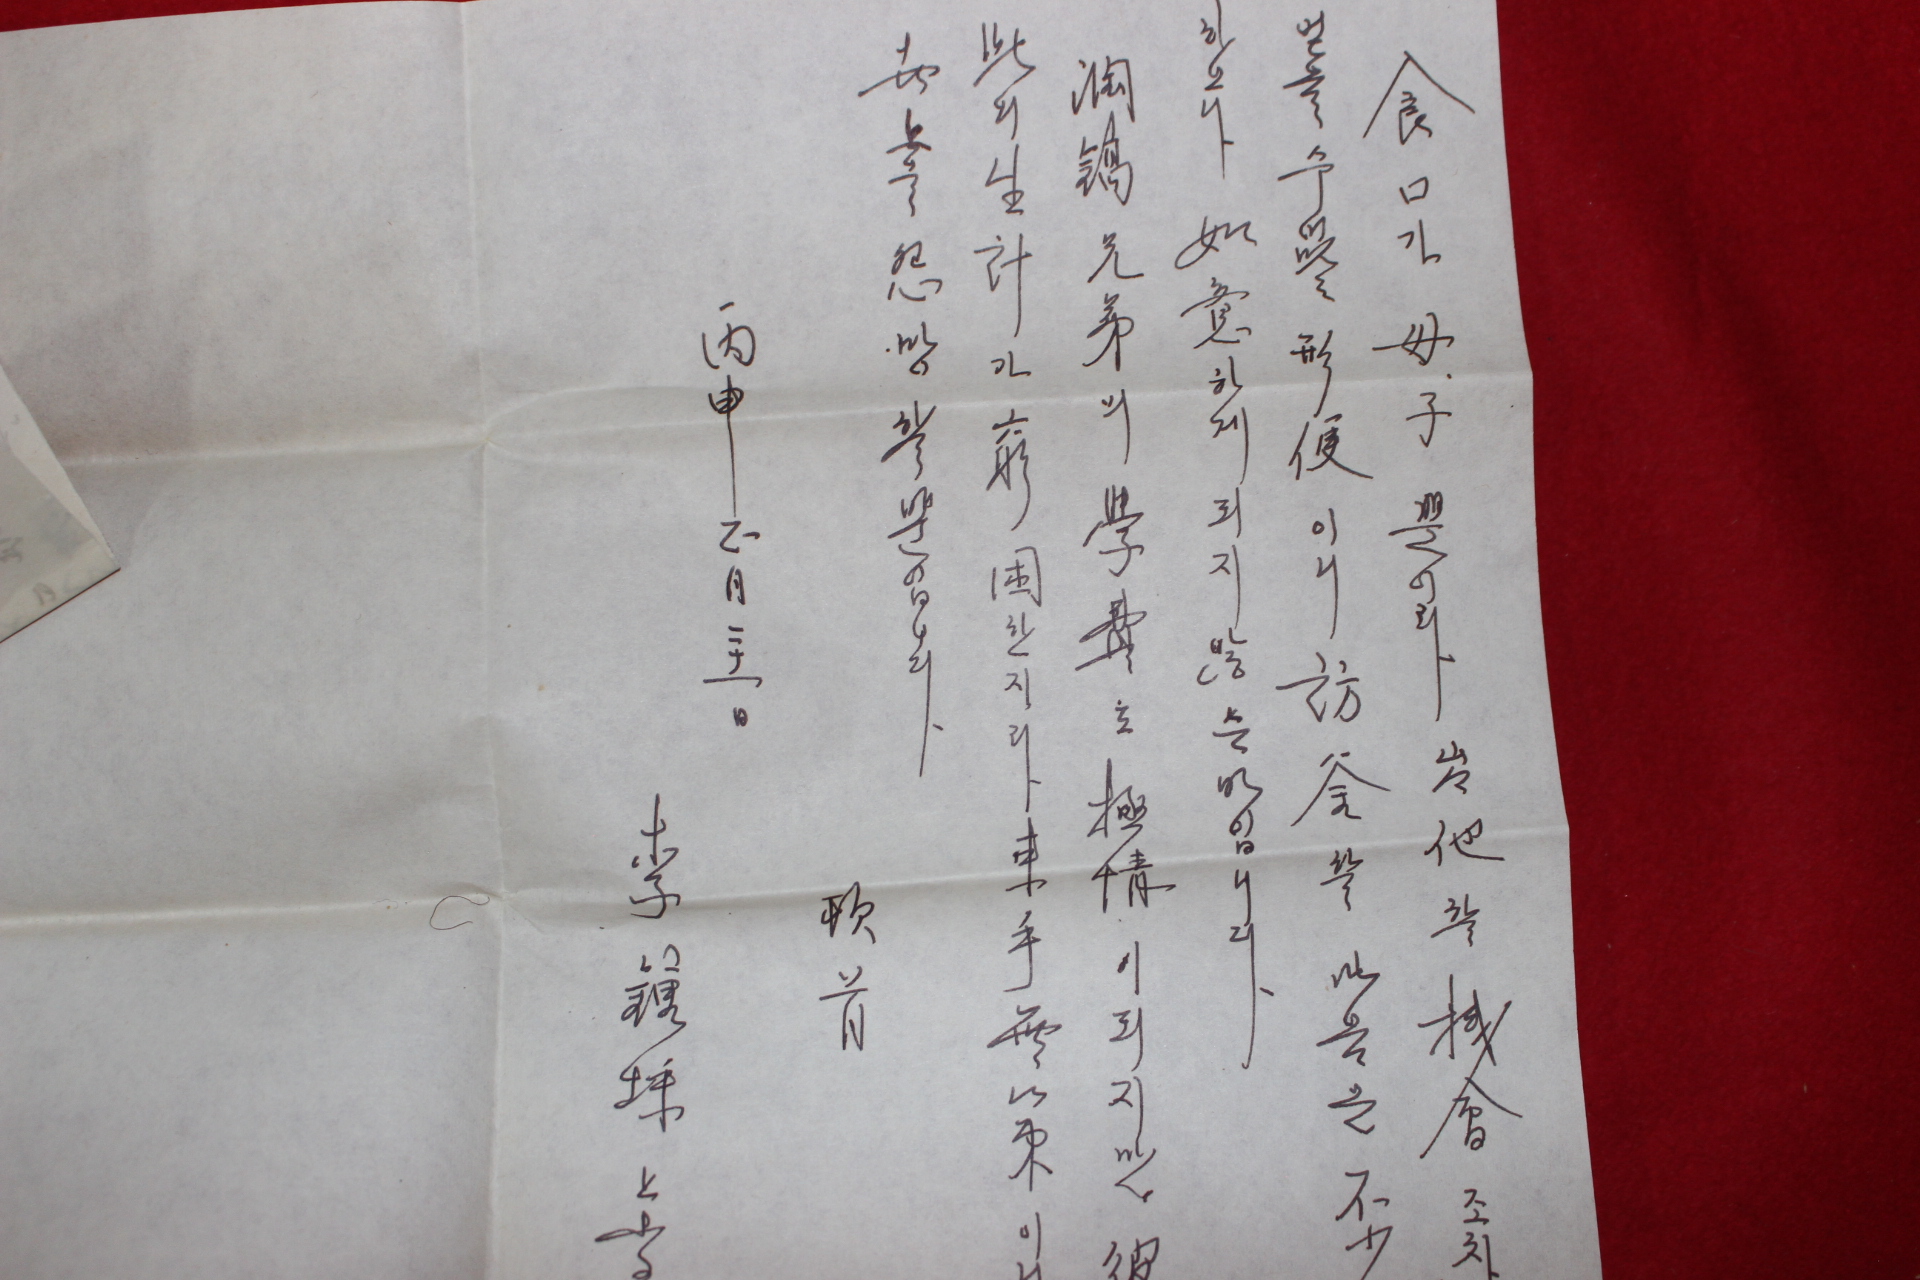 食口가 母子 뿐이라 出他할 機會조차
없을 수 밖을 形便이니 訪釜할 마음은 不少
하오나 如意하게 되지 않는 바입니다
潤鎬 兄弟의 學費로 極情이되지만 彼
此의 生計가 窮困한지라 束手無策이니
한 怨望할 뿐입니다
頓首
丙申 正月 二十一日
李 上書